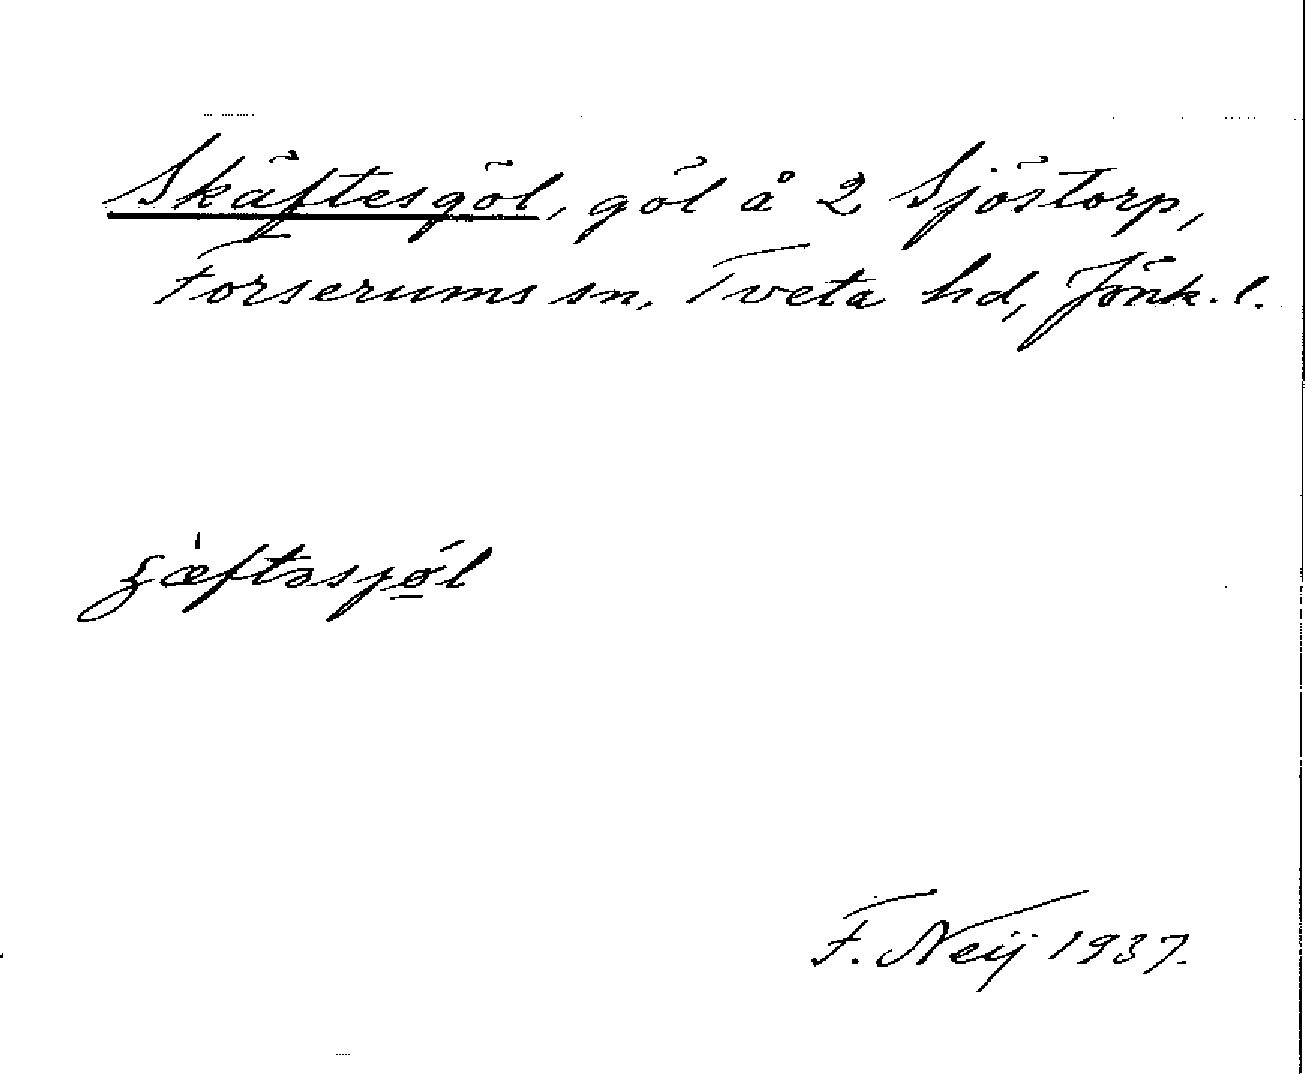 Skäftesgöl, göl å 2 Sjöstorp,
Forserums sn, Tveta hd, Jönk. l.
F. Neij 1937.